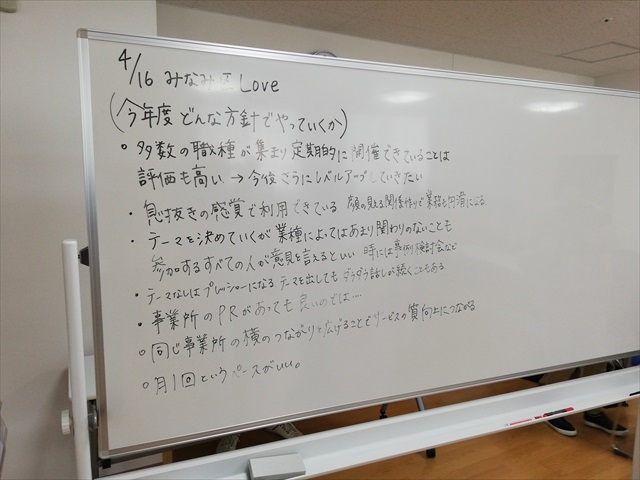 4/16 みなみ区Love
(今年度どんな方針でやっていくか)
○ 多数の職種が集まり定期的に開催できていることは
評価も高い → 今後さらにレベルアップしていきたい
・息抜きの感覚で利用できている 顔の見える関係作りで業務も円滑になる
・テーマを決めていくが業種によってはあまり関わりのないことも
参加するすべての人が意見を言えるといい 時には事例検討会など
・テーマなしはプレッシャーになる テーマを出してもダラダラ話しが続くこともある
・事業所のPRがあっても良いのでは…
○ 同じ事業所の横のつながりを広げることでサービスの質向上につながる
○ 月1回というペースがいい。